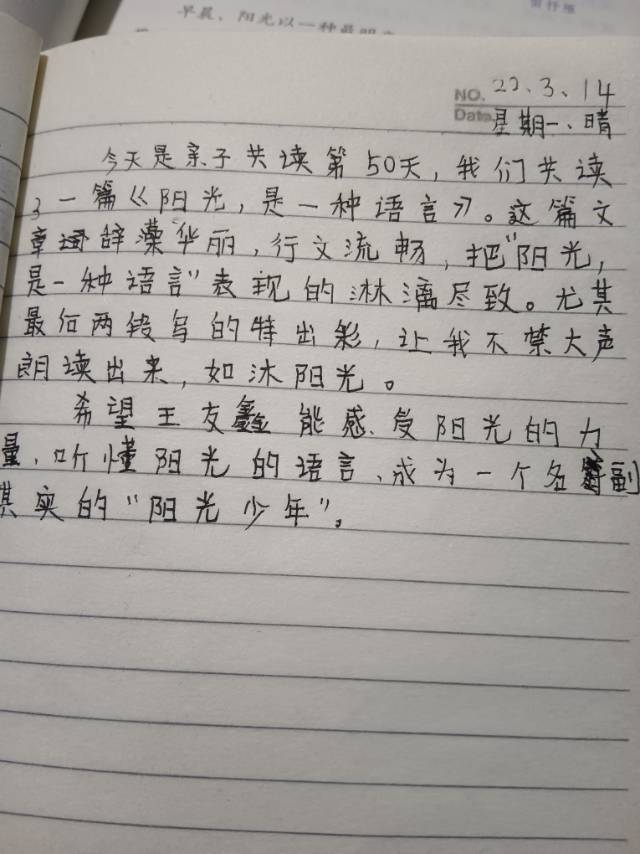 早晨，阳光以一种最明亮
NO. 22.3.14
Date 星期一、晴
今天是亲子共读第50天，我们共读
了一篇《阳光，是一种语言》。这篇文
章词辞藻华丽，行文流畅，把"阳光，
是一种语言"表现的淋漓尽致。尤其
最后两段写的特出彩，让我不禁大声
朗读出来，如沐阳光。
希望王友鑫能感受阳光的力
量，听懂阳光的语言，成为一个名副
其实的"阳光少年"。